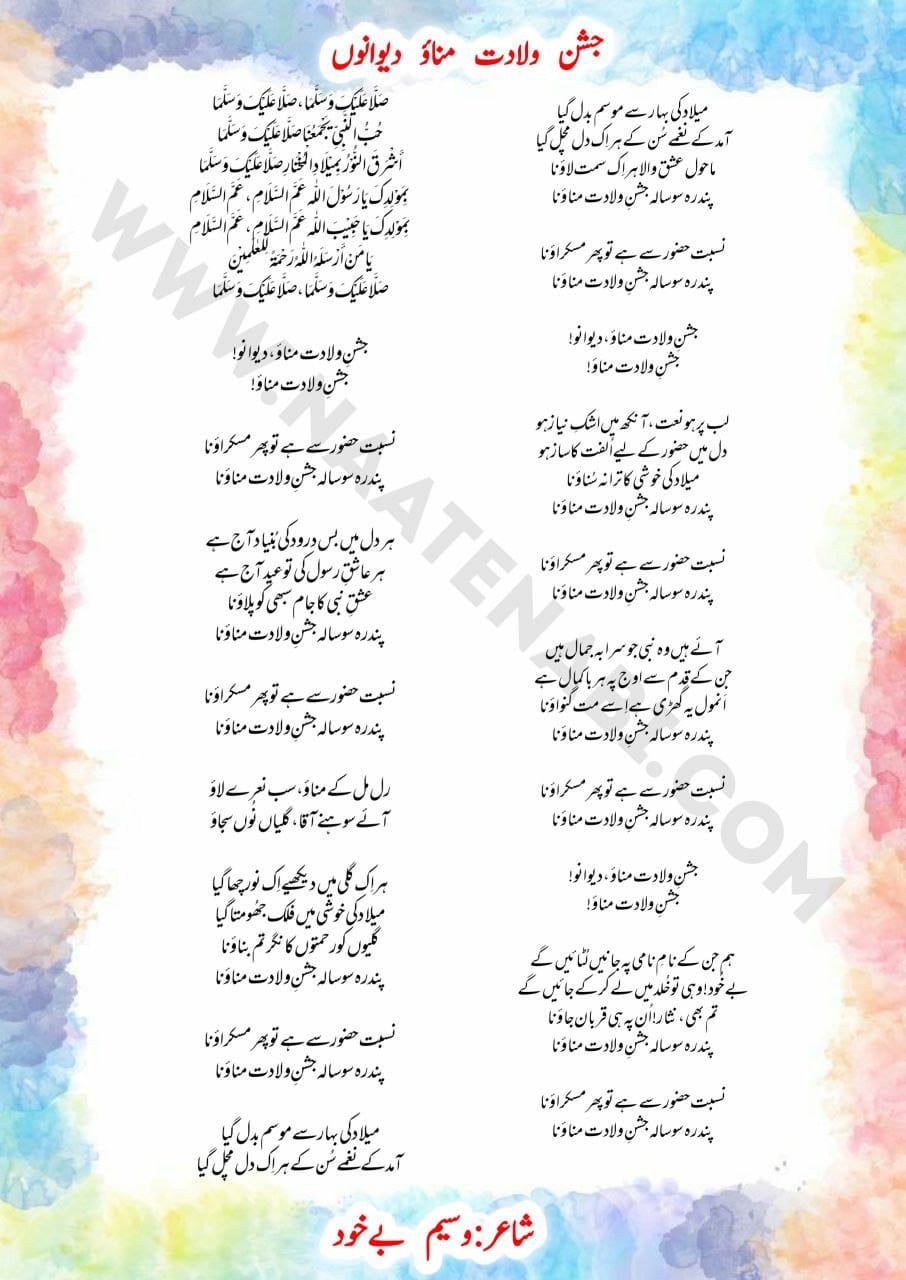 جشن ولادت مناؤ دیوانوں
صَلَّا عَلَیْکَ وَسَلَّمَا، صَلَّا عَلَیْکَ وَسَلَّمَا
حُبُّ النَّبِیِّ یَجْمَعُنَا صَلَّا عَلَیْکَ وَسَلَّمَا
أَشْرَقَ النُّوْرُ بِمِیْلَادِ الْمُخْتَارِ صَلَّا عَلَیْکَ وَسَلَّمَا
بِمَوْلِدِکَ یَا رَسُوْلَ اللہ عَمَّ السَّلَامِ، عَمَّ السَّلَامِ
بِمَوْلِدِکَ یَا حَبِیْبَ اللہ عَمَّ السَّلَامِ، عَمَّ السَّلَامِ
یَا مَنْ أَرْسَلَہُ اللہُ رَحْمَۃً لِّلْعٰلَمِیْنَ
صَلَّا عَلَیْکَ وَسَلَّمَا، صَلَّا عَلَیْکَ وَسَلَّمَا
جشنِ ولادت مناؤ، دیوانو!
جشنِ ولادت مناؤ!
نسبت حضور سے ہے تو پھر مسکراؤنا
پندرہ سو سالہ جشنِ ولادت مناؤنا
ہر دل میں بس درود کی بُنیاد آج ہے
ہر عاشقِ رسول کی تو عید آج ہے
عشقِ نبی کا جام سبھی کو پلاؤنا
پندرہ سو سالہ جشنِ ولادت مناؤنا
نسبت حضور سے ہے تو پھر مسکراؤنا
پندرہ سو سالہ جشنِ ولادت مناؤنا
رل مل کے مناؤ، سب نعرے لاؤ
آئے سوہنے آقا، گلیاں نُوں سجاؤ
ہر اِک گلی میں دیکھیے اِک نور چھا گیا
میلاد کی خوشی میں فلک جھُومتا گیا
گلیوں کو رحمتوں کا نگر تم بناؤنا
پندرہ سو سالہ جشنِ ولادت مناؤنا
نسبت حضور سے ہے تو پھر مسکراؤنا
پندرہ سو سالہ جشنِ ولادت مناؤنا
میلاد کی بہار سے موسم بدل گیا
آمد کے نغمے سُن کے ہر اِک دل مچل گیا
میلاد کی بہار سے موسم بدل گیا
آمد کے نغمے سُن کے ہر اِک دل مچل گیا
ماحول عشق والا ہر اِک سمت لاؤنا
پندرہ سو سالہ جشنِ ولادت مناؤنا
نسبت حضور سے ہے تو پھر مسکراؤنا
پندرہ سو سالہ جشنِ ولادت مناؤنا
جشنِ ولادت مناؤ، دیوانو!
جشنِ ولادت مناؤ!
لب پر ہو نعت، آنکھ میں اشکِ نیاز ہو
دل میں حضور کے لیے اُلفت کا ساز ہو
میلاد کی خوشی کا ترانہ سُناؤنا
پندرہ سو سالہ جشنِ ولادت مناؤنا
نسبت حضور سے ہے تو پھر مسکراؤنا
پندرہ سو سالہ جشنِ ولادت مناؤنا
آئے ہیں وہ نبی جو سراپہ جمال ہیں
جن کے قدم سے اوج پہ ہر باکمال ہے
اَنمول یہ گھڑی ہے اِسے مت گنواؤنا
پندرہ سو سالہ جشنِ ولادت مناؤنا
نسبت حضور سے ہے تو پھر مسکراؤنا
پندرہ سو سالہ جشنِ ولادت مناؤنا
جشنِ ولادت مناؤ، دیوانو!
جشنِ ولادت مناؤ!
ہم جن کے نامِ نامی پہ جانیں لُٹائیں گے
بے خُود! وہی تو خُلد میں لے کر کے جائیں گے
تم بھی، نثار! اُن پہ ہی قربان جاؤنا
پندرہ سو سالہ جشنِ ولادت مناؤنا
نسبت حضور سے ہے تو پھر مسکراؤنا
پندرہ سو سالہ جشنِ ولادت مناؤنا
شاعر: وسیم بے خود
WWW.NAATENABI.COM